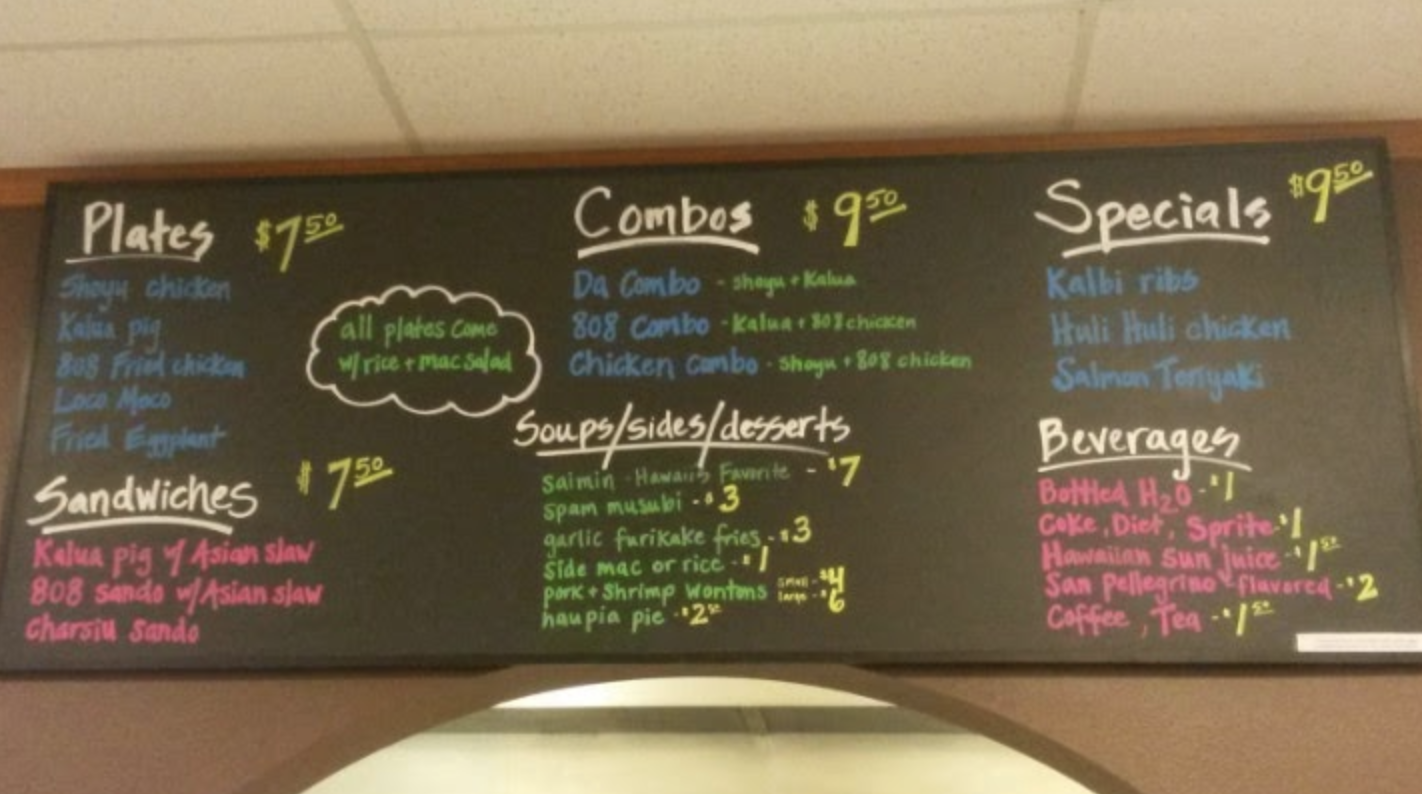 Plates $7.50
Shoyu chicken
Kalua pig
808 Fried chicken
Loco Moco
Fried Eggplant
all plates come
w/rice + mac salad
Sandwiches $7.50
Kalua pig w/ Asian slaw
808 sando w/Asian slaw
Charsiu Sando
Combos $9.50
Da Combo - shoyu + Kalua
808 Combo - Kalua + 808 chicken
Chicken Combo - shoyu + 808 chicken
Soups/sides/desserts
saimin - Hawaii's Favorite - $7
spam musubi - $3
garlic furikake fries - $3
Side mac or rice - $1
pork + Shrimp Wontons small - $4
large - $6
haupia pie - $2.50
Specials $9.50
Kalbi ribs
Huli Huli chicken
Salmon Teriyaki
Beverages
Bottled H2O - $1
Coke, Diet, Sprite - $1
Hawaiian Sun juice - $1.50
San pellegrino - flavored - $2
Coffee, Tea - $1.50